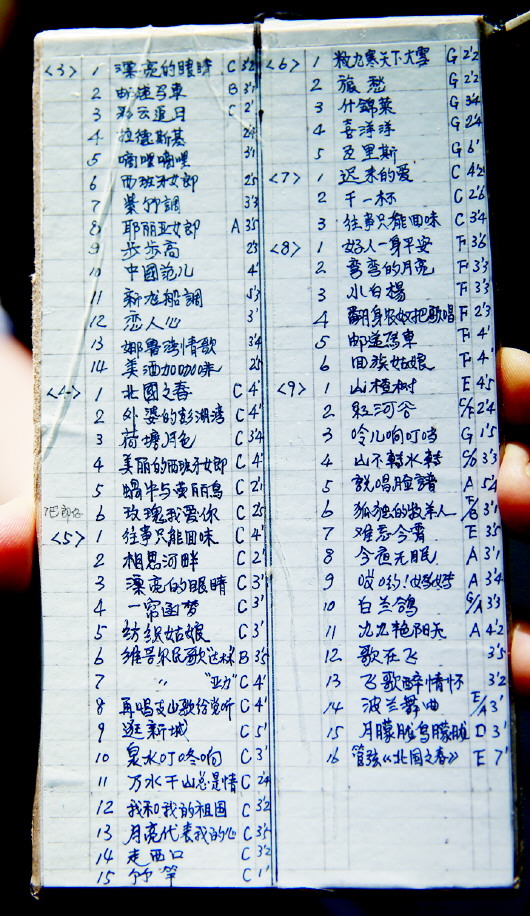 <3> 1 漂亮的眼睛 C 3'2
2 邮递马車 B 3'
3 彩云追日 C 2'
4 拉德斯基
5 嘀哩嘀哩 3'
6 西班牙女郎 2'5
7 紫竹調 3'3
8 耶丽亚女郎 A 3'5
9 步步高 2'5
10 中國范儿 4'
11 新龙船調
12 恋人心 3'
13 娜鲁湾情歌 3'4
14 美酒加咖啡 2'5
<4> 1 北國之春 C 4'
2 外婆的彭湖湾 C 4'
3 荷塘月色 C 3'4
4 美丽的西班牙女郎 C 4'
5 蝸牛与黄丽鸟 C
6 玫瑰我爱你 C 2'5
<5> 1 往事只能回味 C 4'
2 相思河畔 C 2'
3 漂亮的眼睛 C 3'
4 一帘幽梦 C 3'
5 纺织姑娘 C 3'
6 维吾尔民歌 B 3'5
7 〃 "亚力" C 4'
8 再唱支山歌给党听 C 4'
9 逛新城 C 5'
10 泉水叮咚响 C 3'
11 万水千山总是情 C 2'4
12 我和我的祖国 C 3'2
13 月亮代表我的心 C 3'5
14 走西口 C 3'2
15 竹竿 C 1'
<6> 1 数九寒天下大雪 G 2'2
2 旅愁 G 2'2
3 什錦菜 G 3'4
4 喜洋洋 G 2'4
5 及里斯 G 6'
<7> 1 迟来的爱 C 4'2
2 千一杯 C 2'6
3 往事只能回味 C 3'4
<8> 1 好人一身平安 F 3'6
2 弯弯的月亮 F 3'3
3 小白楊 F 3'3
4 翻身农奴把歌唱 F 2'3
5 邮递马車 F 4'
6 回族姑娘 F 4'
<9> 1 山楂树 E 4'5
2 红河谷 C/F 2'4
3 呤儿响叮当 G 1'5
4 山不轉水轉 C/D 3'3
5 説唱臉譜 A 5'4
6 孤独的牧羊人 3'1
7 难忘今霄 E 3'5
8 今夜无眠 A 3'1
9 哎哟!妈妈 A 3'4
10 白兰鸽 G/A 3'3
11 九九艳阳天 A 4'2
12 歌在飞 3'5
13 飞歌醉情怀 3'2
14 波兰舞曲 E/A 3'
15 月朦胧鸟朦胧 D 3'
16 管弦《北国之春》 E 7'